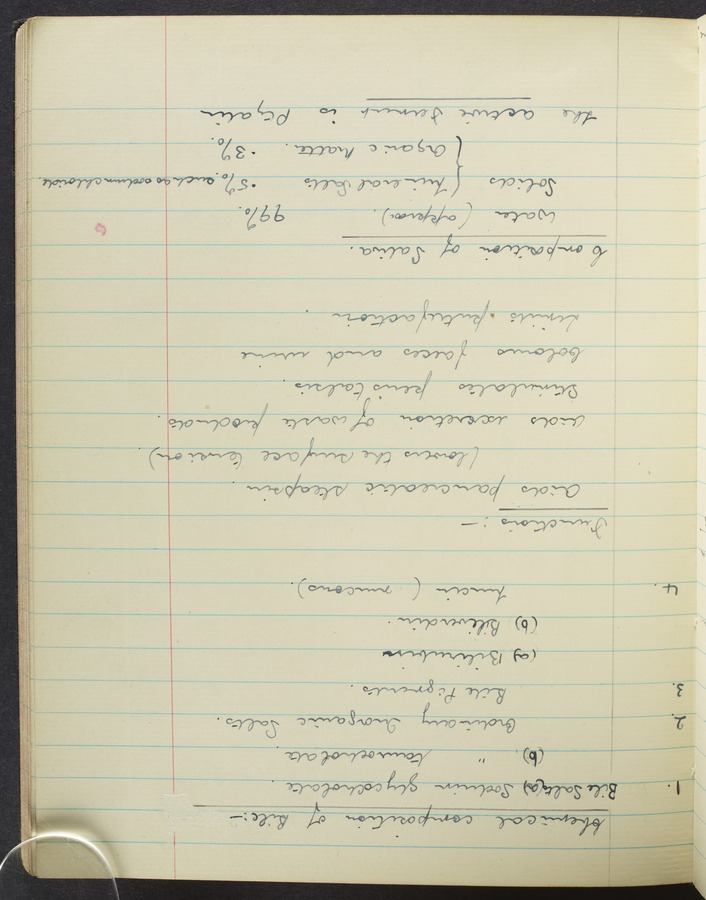 Chemical composition of Bile:-
1. Bile Salts (a) Sodium glycocholate.
(b) " taurocholate.
2. Ordinary Inorganic Salts.
3. Bile Pigments.
(a) Bilirubin
(b) Biliverdin.
4. Mucin (mucous).
Functions:-
Aids pancreatic steapsin.
(lowers the surface tension)
Aids excretion of waste products.
Stimulates peristalsis.
Colours faeces and urine
Limits putrefaction.
Composition of Saliva.
Water (approx). 99%.
Solids { Mineral Salts .5%. such as sodium chloride.
{ Organic matter. .3%.
The active ferment is Ptyalin